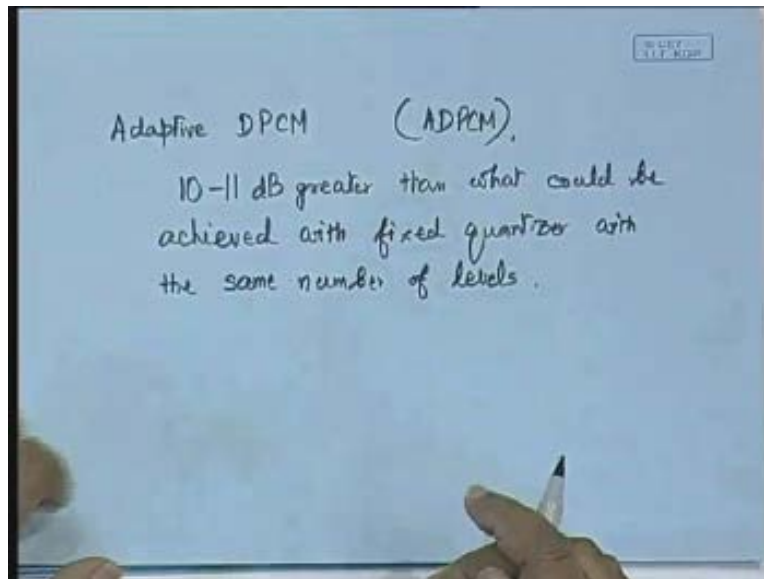 Adaptive DPCM (ADPCM).
10-11 dB greater than what could be
achieved with fixed quantizer with
the same number of levels.